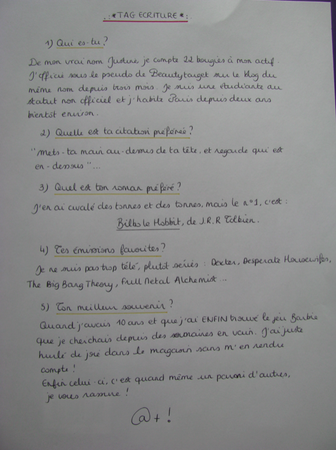 * TAG ECRITURE * :
1) Qui es-tu ?
De mon vrai nom Justine, je compte 22 bougies à mon actif
J'officie sous le pseudo de Beautytarget sur le blog du
même nom depuis trois mois. Je suis une étudiante au
statut non officiel et j'habite Paris depuis deux ans
bientôt environ.
2) Quelle est ta citation préférée ?
"Mets-ta main au-dessus de ta tête, et regarde qui est
en-dessous"...
3) Quel est ton roman préféré ?
J'en ai avalé des tonnes et des tonnes, mais le n°1, c'est :
Bilbo le Hobbit, de J.R.R Tolkien.
4) Tes émissions favorites ?
Je ne suis pas trop télé, plutôt séries : Dexter, Desperate Housewifes,
The Big Bang Theory, Full Metal Alchemist ...
5) Ton meilleur souvenir ?
Quand j'avais 10 ans et que j'ai ENFIN trouvé le jeu Barbie
que je cherchais depuis des semaines en vain. J'ai juste
hurlé de joie dans le magasin sans m'en rendre
compte !
Enfin celui-ci, c'est quand même un parmi d'autres,
je vous rassure !
@+ !